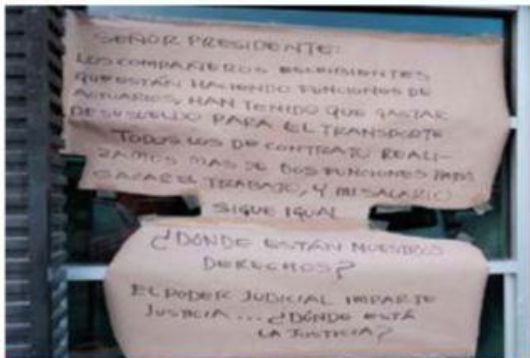 SEÑOR PRESIDENTE:
LOS COMPAÑEROS ESCRIBIENTES
QUE ESTÁN HACIENDO FUNCIONES DE
ACTUARIOS, HAN TENIDO QUE GASTAR
DE SU SUELDO PARA EL TRANSPORTE
TODOS LOS DE CONTRATO REALI-
ZAMOS MAS DE DOS FUNCIONES PARA
SACAR EL TRABAJO, Y MI SALARIO
SIGUE IGUAL
¿DÓNDE ESTÁN NUESTROS
DERECHOS?
EL PODER JUDICIAL IMPARTE
JUSTICIA... ¿DÓNDE ESTÁ
LA JUSTICIA?